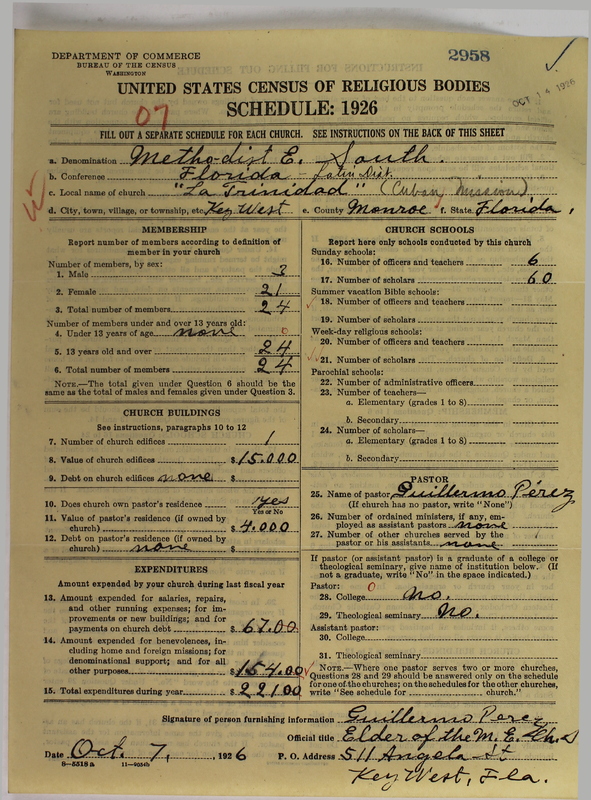 DEPARTMENT OF COMMERCE
BUREAU OF THE CENSUS
WASHINGTON
2958
OCT 14 1926
UNITED STATES CENSUS OF RELIGIOUS BODIES
SCHEDULE: 1926
07
FILL OUT A SEPARATE SCHEDULE FOR EACH CHURCH. SEE INSTRUCTIONS ON THE BACK OF THIS SHEET
a. Denomination Methodist E. South.
b. Conference Florida - Latin Dist.
c. Local name of church "La Trinidad" (Cuban Mission)
d. City, town, village, or township, etc. Key West e. County Monroe f. State Florida.
MEMBERSHIP
Report number of members according to definition of
member in your church
Number of members, by sex:
1. Male 3
2. Female 21
3. Total number of members 24
Number of members under and over 13 years old:
4. Under 13 years of age none 0
5. 13 years old and over 24
6. Total number of members 24
NOTE.—The total given under Question 6 should be
same as the total of males and females given under Question 3.
CHURCH BUILDINGS
See instructions, paragraphs 10 to 12
7. Number of church edifices 1
8. Value of church edifices $ 15.000
9. Debt on church edifices none $
10. Does church own pastor's residence yes
Yes or No
11. Value of pastor's residence (if owned by
church) $ 4.000
12. Debt on pastor's residence (if owned by
church) none $
EXPENDITURES
Amount expended by your church during last fiscal year
13. Amount expended for salaries, repairs,
and other running expenses; for im-
provements or new buildings; and for
payments on church debt $ 67.00
14. Amount expended for benevolences, in-
cluding home and foreign missions; for
denominational support; and for all
other purposes $ 154.00
15. Total expenditures during year $ 221.00
CHURCH SCHOOLS
Report here only schools conducted by this church
Sunday schools:
16. Number of officers and teachers 6
17. Number of scholars 60
Summer vacation Bible schools:
18. Number of officers and teachers
19. Number of scholars
Week-day religious schools:
20. Number of officers and teachers
21. Number of scholars
Parochial schools:
22. Number of administrative officers
23. Number of teachers—
a. Elementary (grades 1 to 8)
b. Secondary
24. Number of scholars—
a. Elementary (grades 1 to 8)
b. Secondary
PASTOR
25. Name of pastor Guillermo Pérez
(If church has no pastor, write "None")
26. Number of ordained ministers, if any, em-
ployed as assistant pastors none
27. Number of other churches served by the
pastor or his assistants none
If pastor (or assistant pastor) is a graduate of a college or
theological seminary, give name of institution below. (If
not a graduate, write "No" in the space indicated.)
Pastor: 0
28. College No.
29. Theological seminary No.
Assistant pastor:
30. College
31. Theological seminary
NOTE.—Where one pastor serves two or more churches,
Questions 28 and 29 should be answered only on the schedule
for one of the churches; on the schedules for the other churches,
write "See schedule for church."
Signature of person furnishing information Guillermo Perez
Official title Elder of the M. E. Ch. S
Date Oct. 7, 1926 P. O. Address 511 Angela St
8—5518a 11—9054b Key West, Fla.